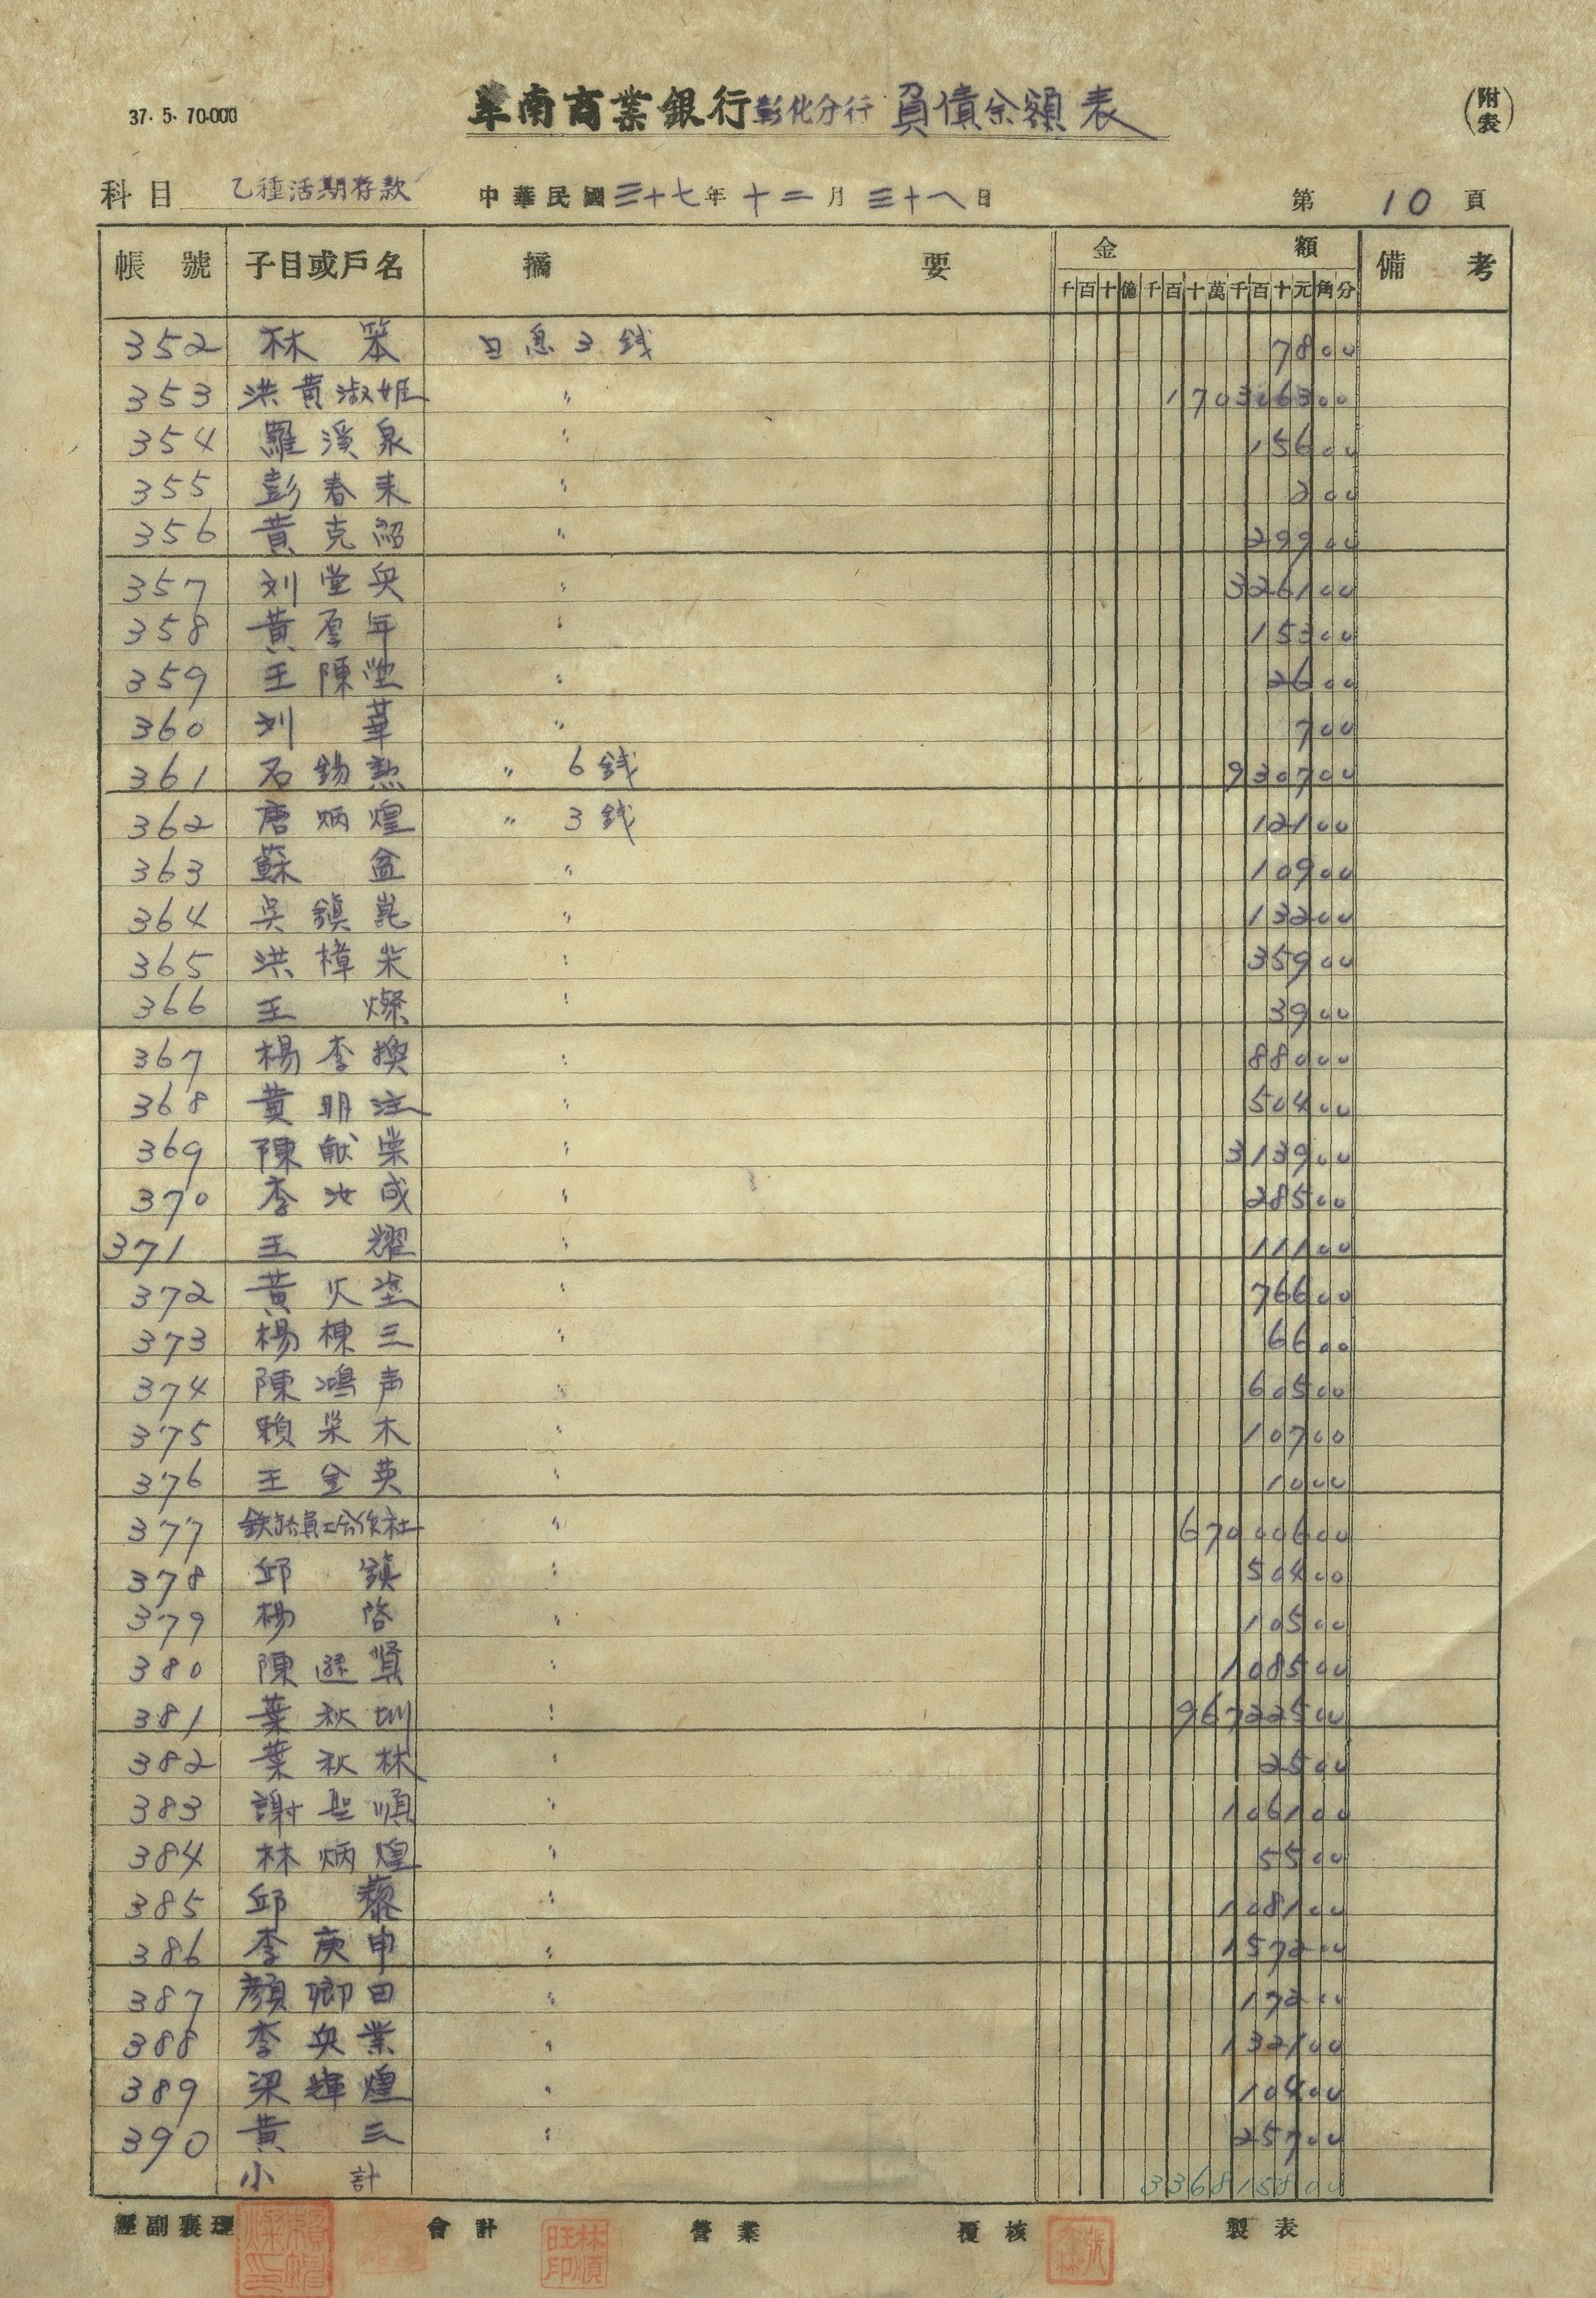 37.5.70.000
華南商業銀行彰化分行 負債余額表
(附表)
科目 乙種活期存款 中華民國三十七年十二月三十一日 第10頁
帳號 子目或戶名 摘要 金額 備考
千百十億千百十萬千百十元角分
352 林 笨 日息3錢 7800
353 洪黃淑姬 〃 170306300
354 羅溪泉 〃 15600
355 彭春来 〃 200
356 黃克紹 〃 29900
357 刘堂 〃 326100
358 黃厚年 〃 15300
359 王陳 〃 2600
360 刘 華 〃 700
361 石錫勲 〃 6錢 930700
362 唐炳煌 〃 3錢 12100
363 蘇 盆 〃 10900
364 吳鎮崑 〃 13200
365 洪樟 〃 35900
366 王 燦 〃 3900
367 楊李換 〃 88000
368 黃明注 〃 50400
369 陳献崇 〃 313900
370 李汝成 〃 28500
371 王 耀 〃 11100
372 黃火塗 〃 76600
373 楊棟三 〃 6600
374 陳鴻声 〃 60500
375 賴栄木 〃 10700
376 王金英 〃 1000
377 鉄路員工合作社 〃 67000600
378 邱 鎮 〃 50400
379 楊 啓 〃 10500
380 陳遜賢 〃 108500
381 葉秋圳 〃 96722500
382 葉秋林 〃 2500
383 謝聖順 〃 106100
384 林炳煌 〃 5500
385 邱 藜 〃 108100
386 李庚申 〃 157200
387 顏卿田 〃 17200
388 李業 〃 132100
389 梁輝煌 〃 10400
390 黃 三 〃 25700
小計 336815800
經副襄理 會計 營業 覆核 製表
林順旺印